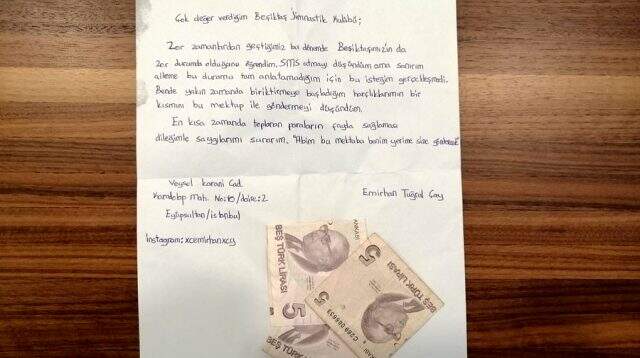 Çok değer verdiğim Beşiktaş Jimnastik Kulübü;
Zor zamanlardan geçtiğimiz bu dönemde Beşiktaşımızın da
zor durumda olduğunu öğrendim. SMS atmayı düşündüm ama sanırım
aileme bu durumu tam anlatamadığım için bu isteğim gerçekleşmedi.
Bende yakın zamanda biriktirmeye başladığım harçlıklarımın bir
kısmını bu mektup ile göndermeyi düşündüm.
En kısa zamanda toplanan paraların fayda sağlaması
dileğimle saygılarımı sunarım. "Abim bu mektubu benim yerime size
Veysel Karani Cad.
Mah. No:10/daire:2
Eyüpsultan/istanbul
Emirhan Tuğral Çay
Instagram: xcemirhanxcy
BEŞ TÜRK LİRASI
5
BEŞ TÜRK LİRASI
5
5
C289 066633
BEŞ TÜRK